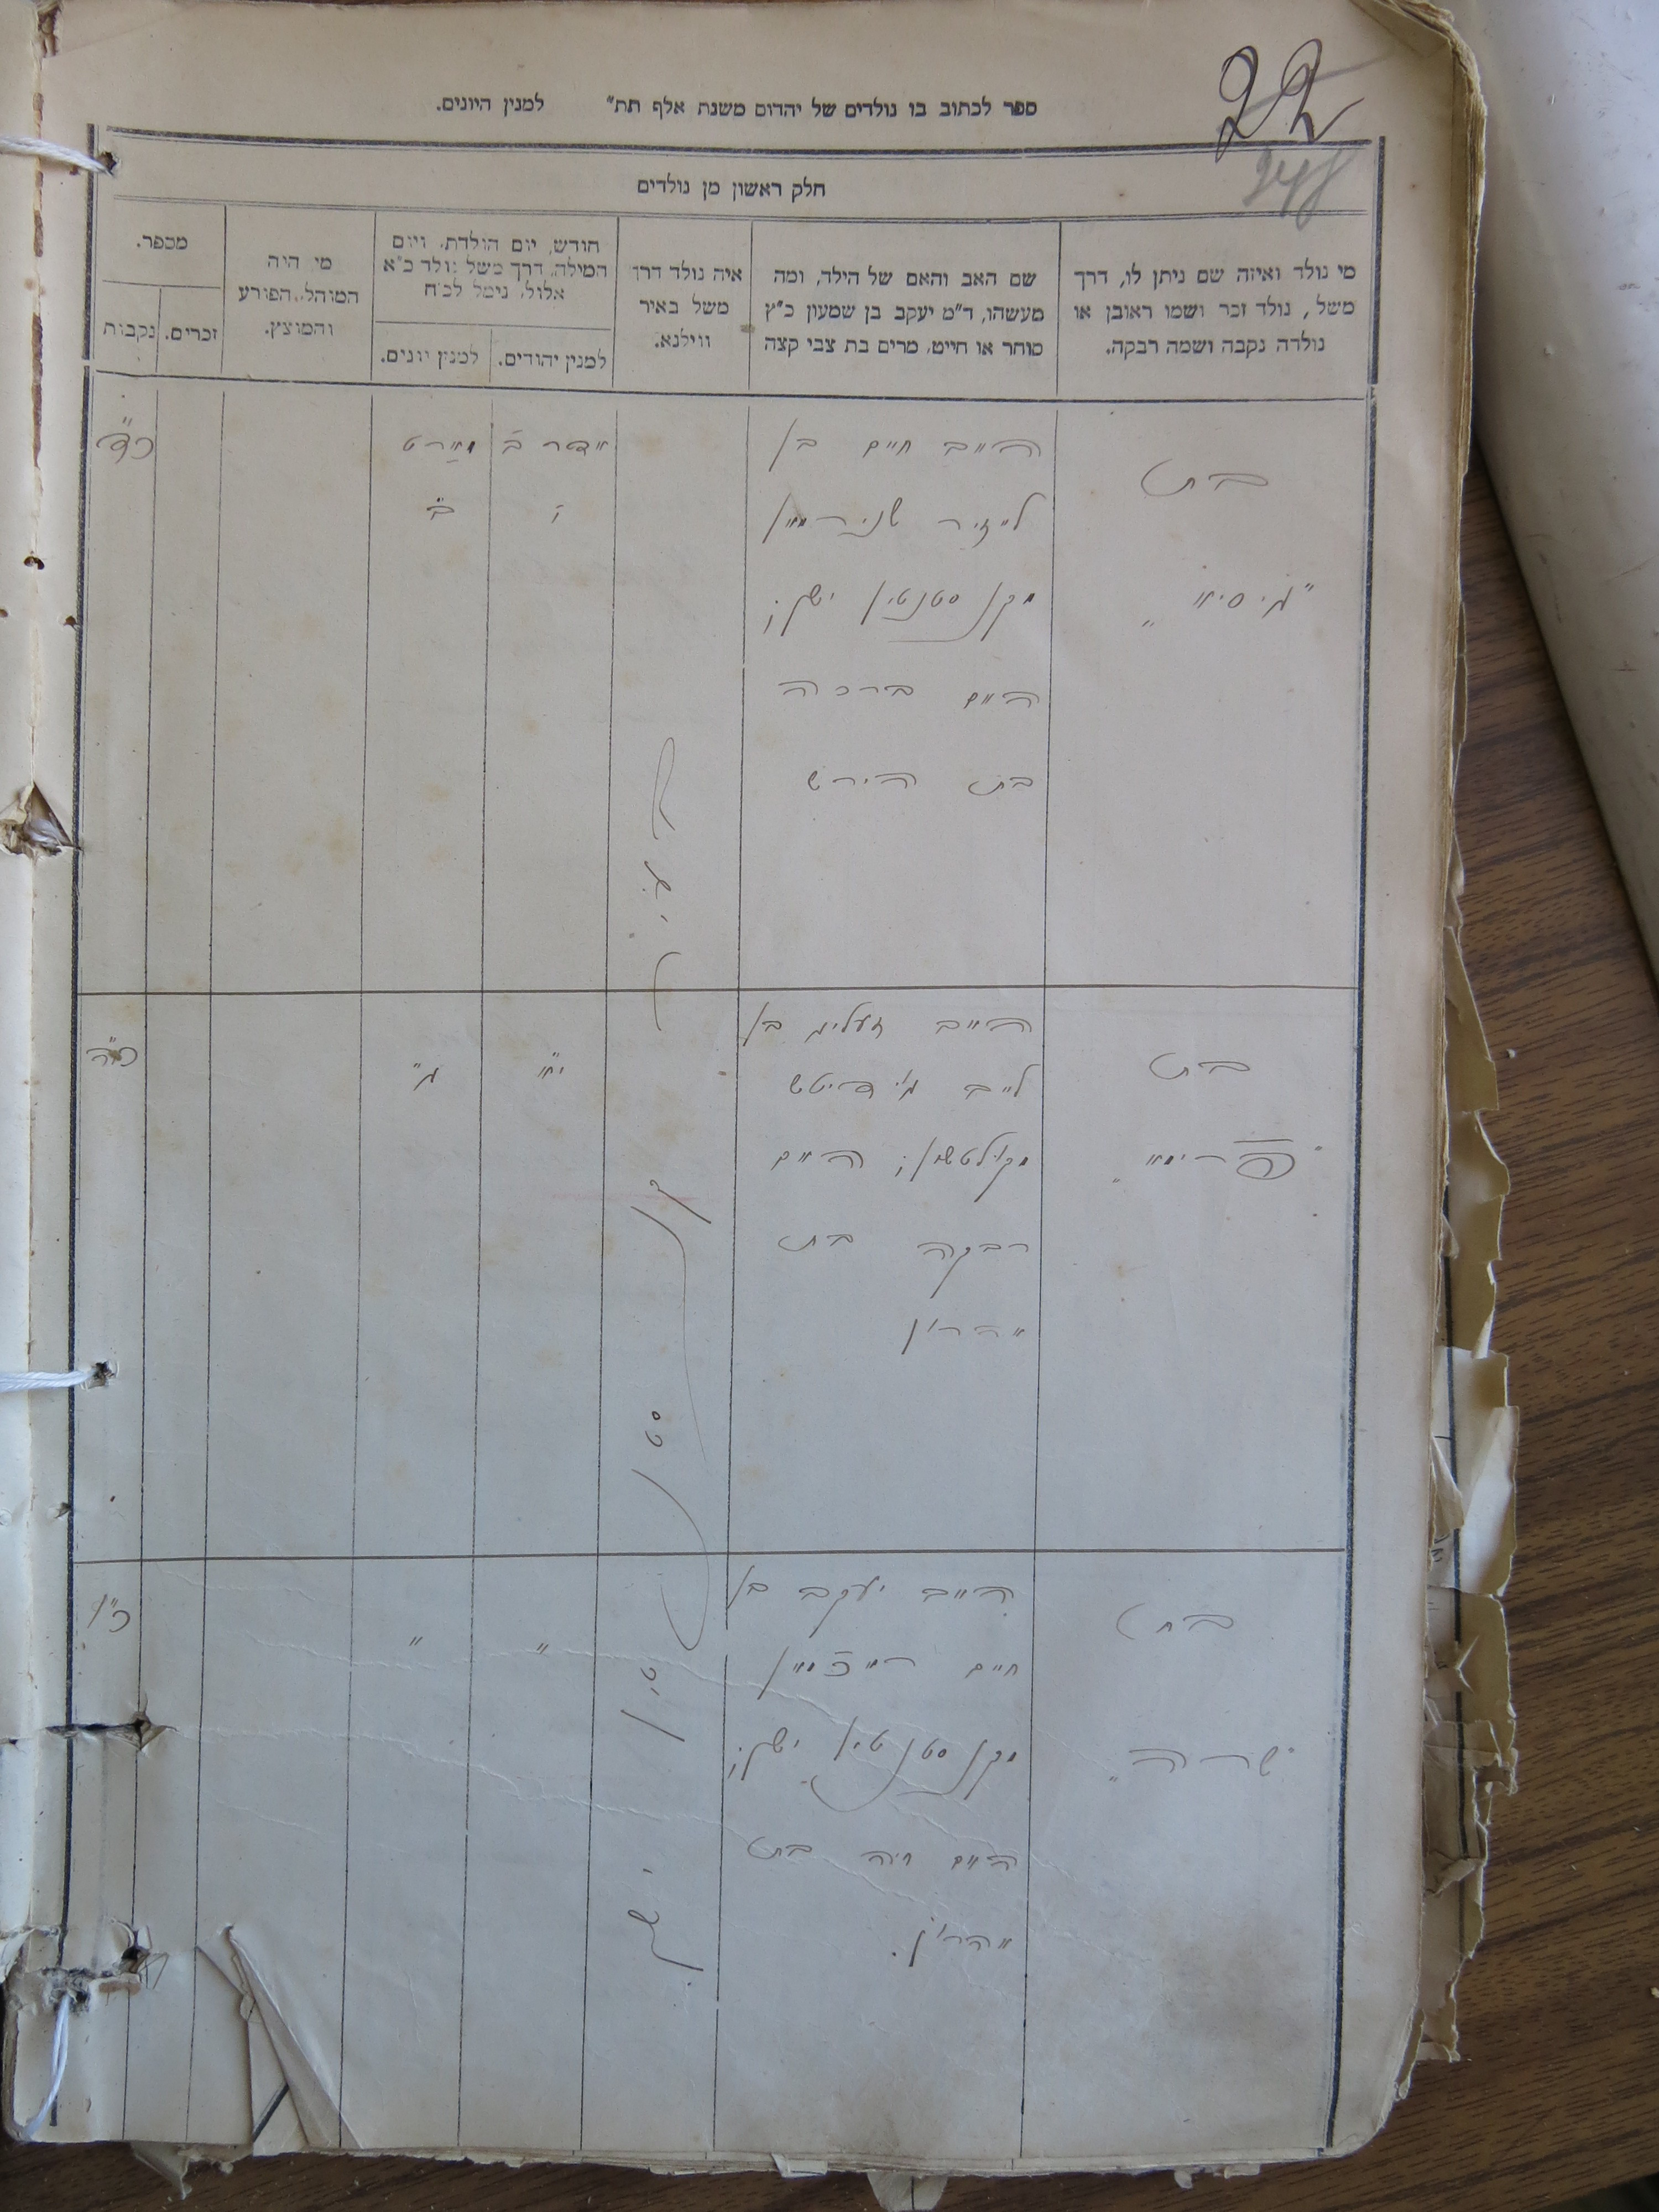 22
ספר לכתוב בו נולדים של יהדום משנת אלף תת״ למנין היונים.
חלק ראשון מן נולדים
מי נולד ואיזה שם ניתן לו, דרך
משל, נולד זכר ושמו ראובן או
נולדה נקבה ושמה רבקה.
שם האב והאם של הילד, ומה
מעשהו, ד״מ יעקב בן שמעון כ״ץ
סוחר או חייט, מרים בת צבי קצה
איה נולד דרך
משל באיר
ווילנא.
חודש, יום הולדת, ויום
המילה, דרך משל נולד כ״א
אלול, נימל לכ״ח
למנין יהודים.
למנין יונים.
מי היה
המוהל, הפורע
והמוצץ.
מספר.
זכרים.
נקבות
בת
האב חיים בן
לייזיר שניידמאן
מקנסטנטין ישן;
האם ברכה
בת הירש
אדר ב
מארט
כ״ד
בת
האב זעליג בן
לייב
האם
רבקה בת
אהרון
י״א
ג״
כ״ה
בת
״שרה״
האב יעקב בן
חיים
מקנסטנטין ישן;
האם חיה בת
אהרון.
״
״
כ״ו
בעיר קנסטנטין ישן.